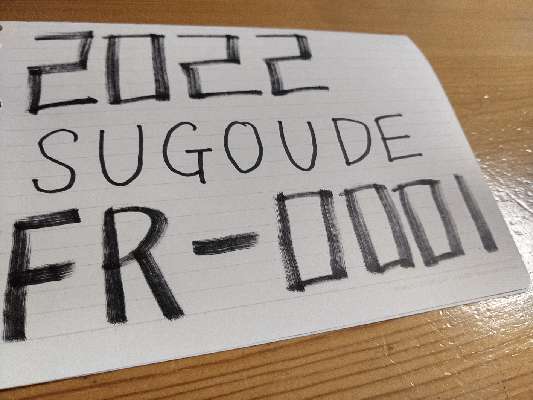 2022
SUGOUDE
FR-0001